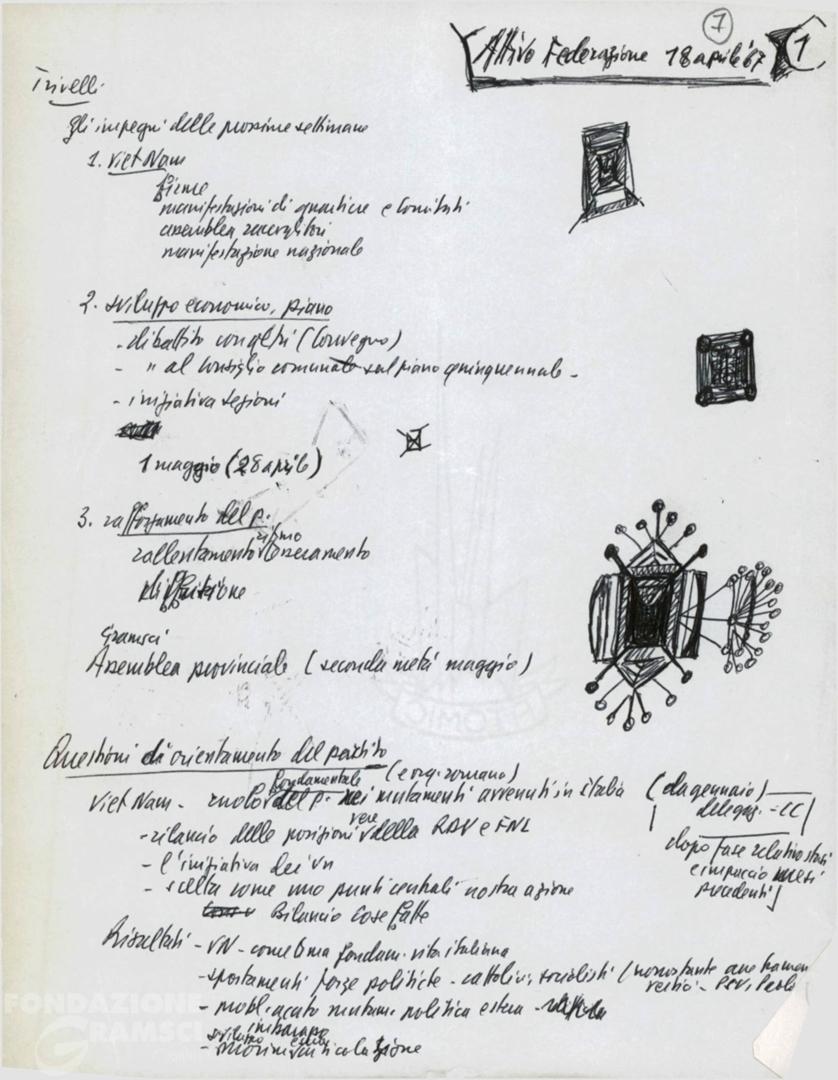 7
Attivo Federazione 18 aprile '67
1
Trivelli
gli impegni delle prossime settimane
1. Viet Nam
firme
manifestazioni di quartiere e Comitati
assemblea raccoglitori
manifestazione nazionale
2. sviluppo economico, piano
- dibattito con altri (Convegno)
- " al Consiglio comunale sul piano quinquennale -
- iniziativa sezioni
1 maggio (28 aprile)
3. rafforzamento del p.
rallentamento ritmo tesseramento
diffusione
Gramsci
Assemblea provinciale (seconda metà maggio)
Questioni di orientamento del partito
Viet Nam - ruolo fondamentale del p. (e org. romana) nei mutamenti avvenuti in Italia (da gennaio)
deleg. - CC
dopo fase relativa stasi
e impaccio mesi
precedenti
- rilancio delle posizioni vere della RDV e FNL
- l'iniziativa dei vn
- scelta come uno punti centrali nostra azione
Bilancio cose fatte
Risultati - VN - come tema fondam. vita italiana
- spostamenti forze politiche - cattolici, socialisti (nonostante
- mobl. politica estera
imbarazzo
- sviluppo
FONDAZIONE
GRAMSCI